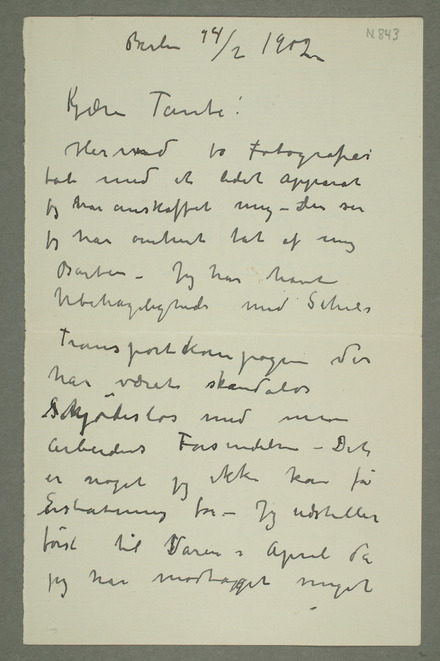 N 843
Berlin 14/2 1902
Kjære Tante!
Hermed to Fotografier
tat med et lidet apparat
jg har anskaffet mig – Den ser
jg har omtrent tat af mig
Barten – Jg har havt
Ubehageligheder med Schuls
Transportkompagni der
har været skandaløs
Skjødesløs med mine
arbeiders Forsendelse – Det
er noget jg ikke kan få
Erstatning for – Jg udstiller
først til Våren i April da
jg har modtaget meget